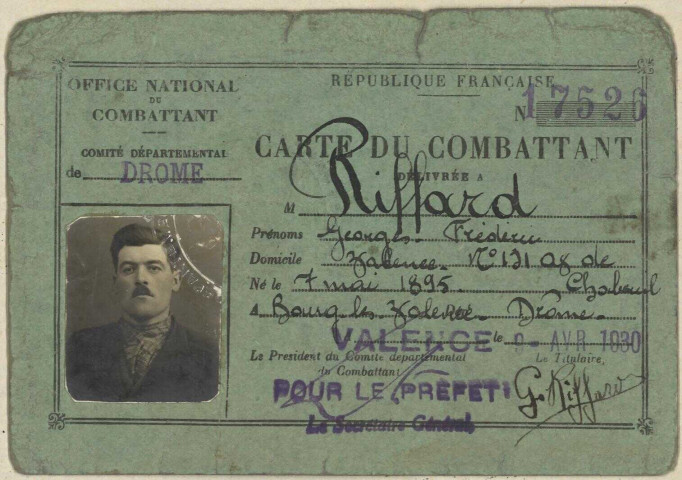 OFFICE NATIONAL
DU
COMBATTANT
COMITÉ DÉPARTEMENTAL
de DROME
RÉPUBLIQUE FRANÇAISE
N 17526
CARTE DU COMBATTANT
DÉLIVRÉE A
M Riffard
Prénoms Georges Frédéric
Domicile Valence N° 131 de
Né le 7 mai 1895 Chabeuil
A Bourg les Valence Drôme
VALENCE le 9 - AVR. 1930
Le President du Comité départemental
du Combattant
Le Titulaire,
POUR LE PREFET
Le Secrétaire Général,
G. Riffard